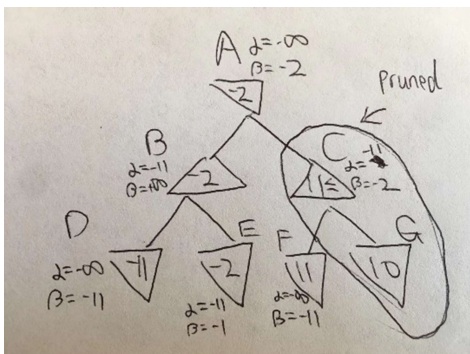 A α=-∞
β=-2
-2
pruned
B
α=-11
β=+∞
-2
C
α=-11
β=-2
11≤
D
-11
α=-∞
β=-11
E
-2
α=-11
β=-1
F
11
α=-∞
β=-11
G
10